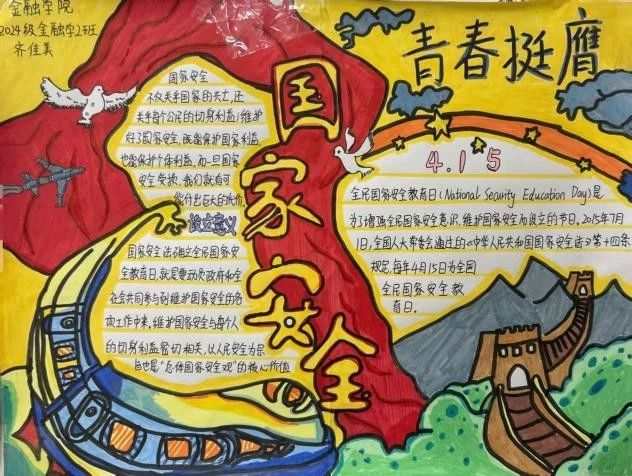 金融学院
2024级金融学2班
齐佳美
青春挺膺
国家安全
国家安全
不仅关乎国家的兴亡,还
关乎每个公民的切身利益;维护
好了国家安全,既能保护国家利益,
也能保护个体利益,而一旦国家
安全受损,我们就有可
能付出巨大的代价
设立意义
国家安全法确立全民国家安
全教育日,就是要动员政府和全
社会共同参与到维护国家安全的各
项工作中来,维护国家安全与每个人
的切身利益密切相关,以人民安全为宗
旨也是"总体国家安全观"的核心价值
4.15
全民国家安全教育日(National Security Education Day)是
为了增强全民国家安全意识,维护国家安全而设立的节日。2015年7月
1日,全国人大常委会通过的《中华人民共和国国家安全法》第十四条
规定,每年4月15日为全民
全民国家安全教
育日。